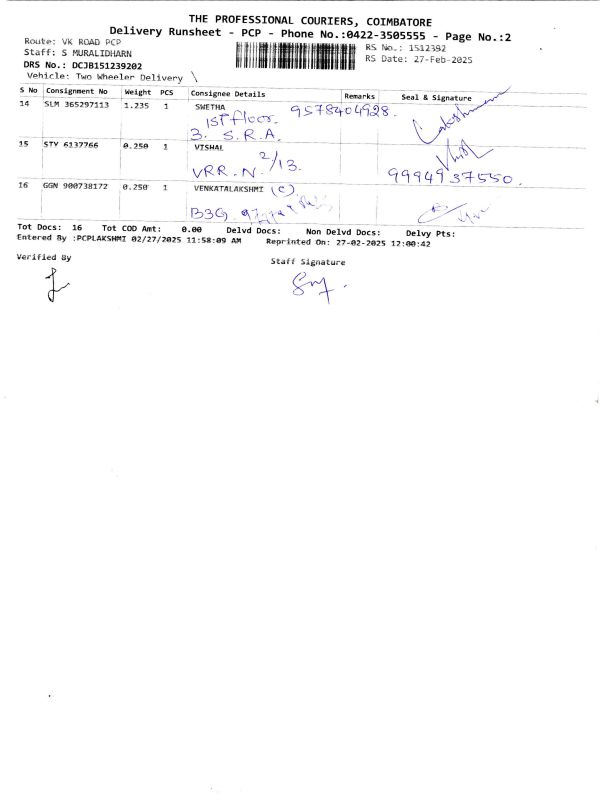 THE PROFESSIONAL COURIERS, COIMBATORE
Delivery Runsheet - PCP - Phone No.:0422-3505555 - Page No.:2
Route: VK ROAD PCP
Staff: S MURALIDHARN
DRS No.: DCJB151239202
Vehicle: Two Wheeler Delivery
RS No.: 1512392
RS Date: 27-Feb-2025
S No Consignment No Weight PCS Consignee Details Remarks Seal & Signature
14 SLM 365297113 1.235 1 SWETHA 9578404928.
1st floor.
3. S.R.A.
15 STY 6137766 0.250 1 VISHAL
VRR.N. 2/13. 9994937550.
16 GGN 900738172 0.250 1 VENKATALAKSHMI (C).
B3G.
Tot Docs: 16 Tot COD Amt: 0.00 Delvd Docs: Non Delvd Docs: Delvy Pts:
Entered By :PCPLAKSHMI 02/27/2025 11:58:09 AM Reprinted On: 27-02-2025 12:00:42
Verified By
Staff Signature